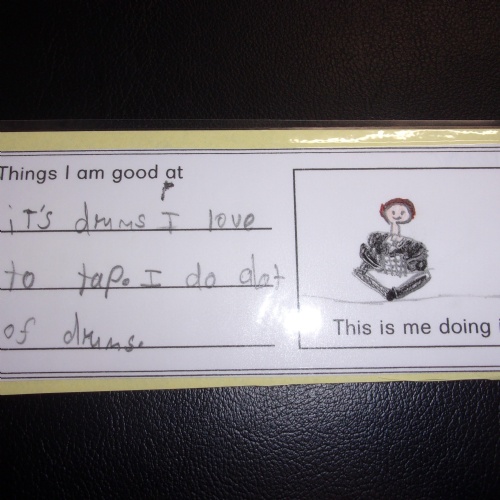 Things I am good at
it's drums I love
to tap. I do alot
of drums.
This is me doing i